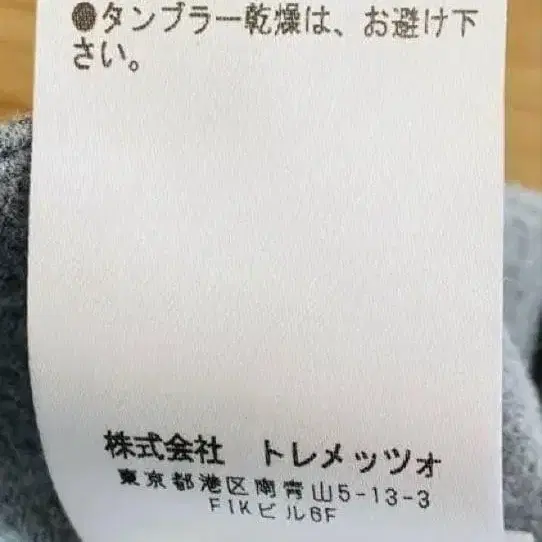 ●タンブラー乾燥は、お避け下
さい。
株式会社　トレメッツォ
東京都港区南青山5-13-3
FIKビル6F